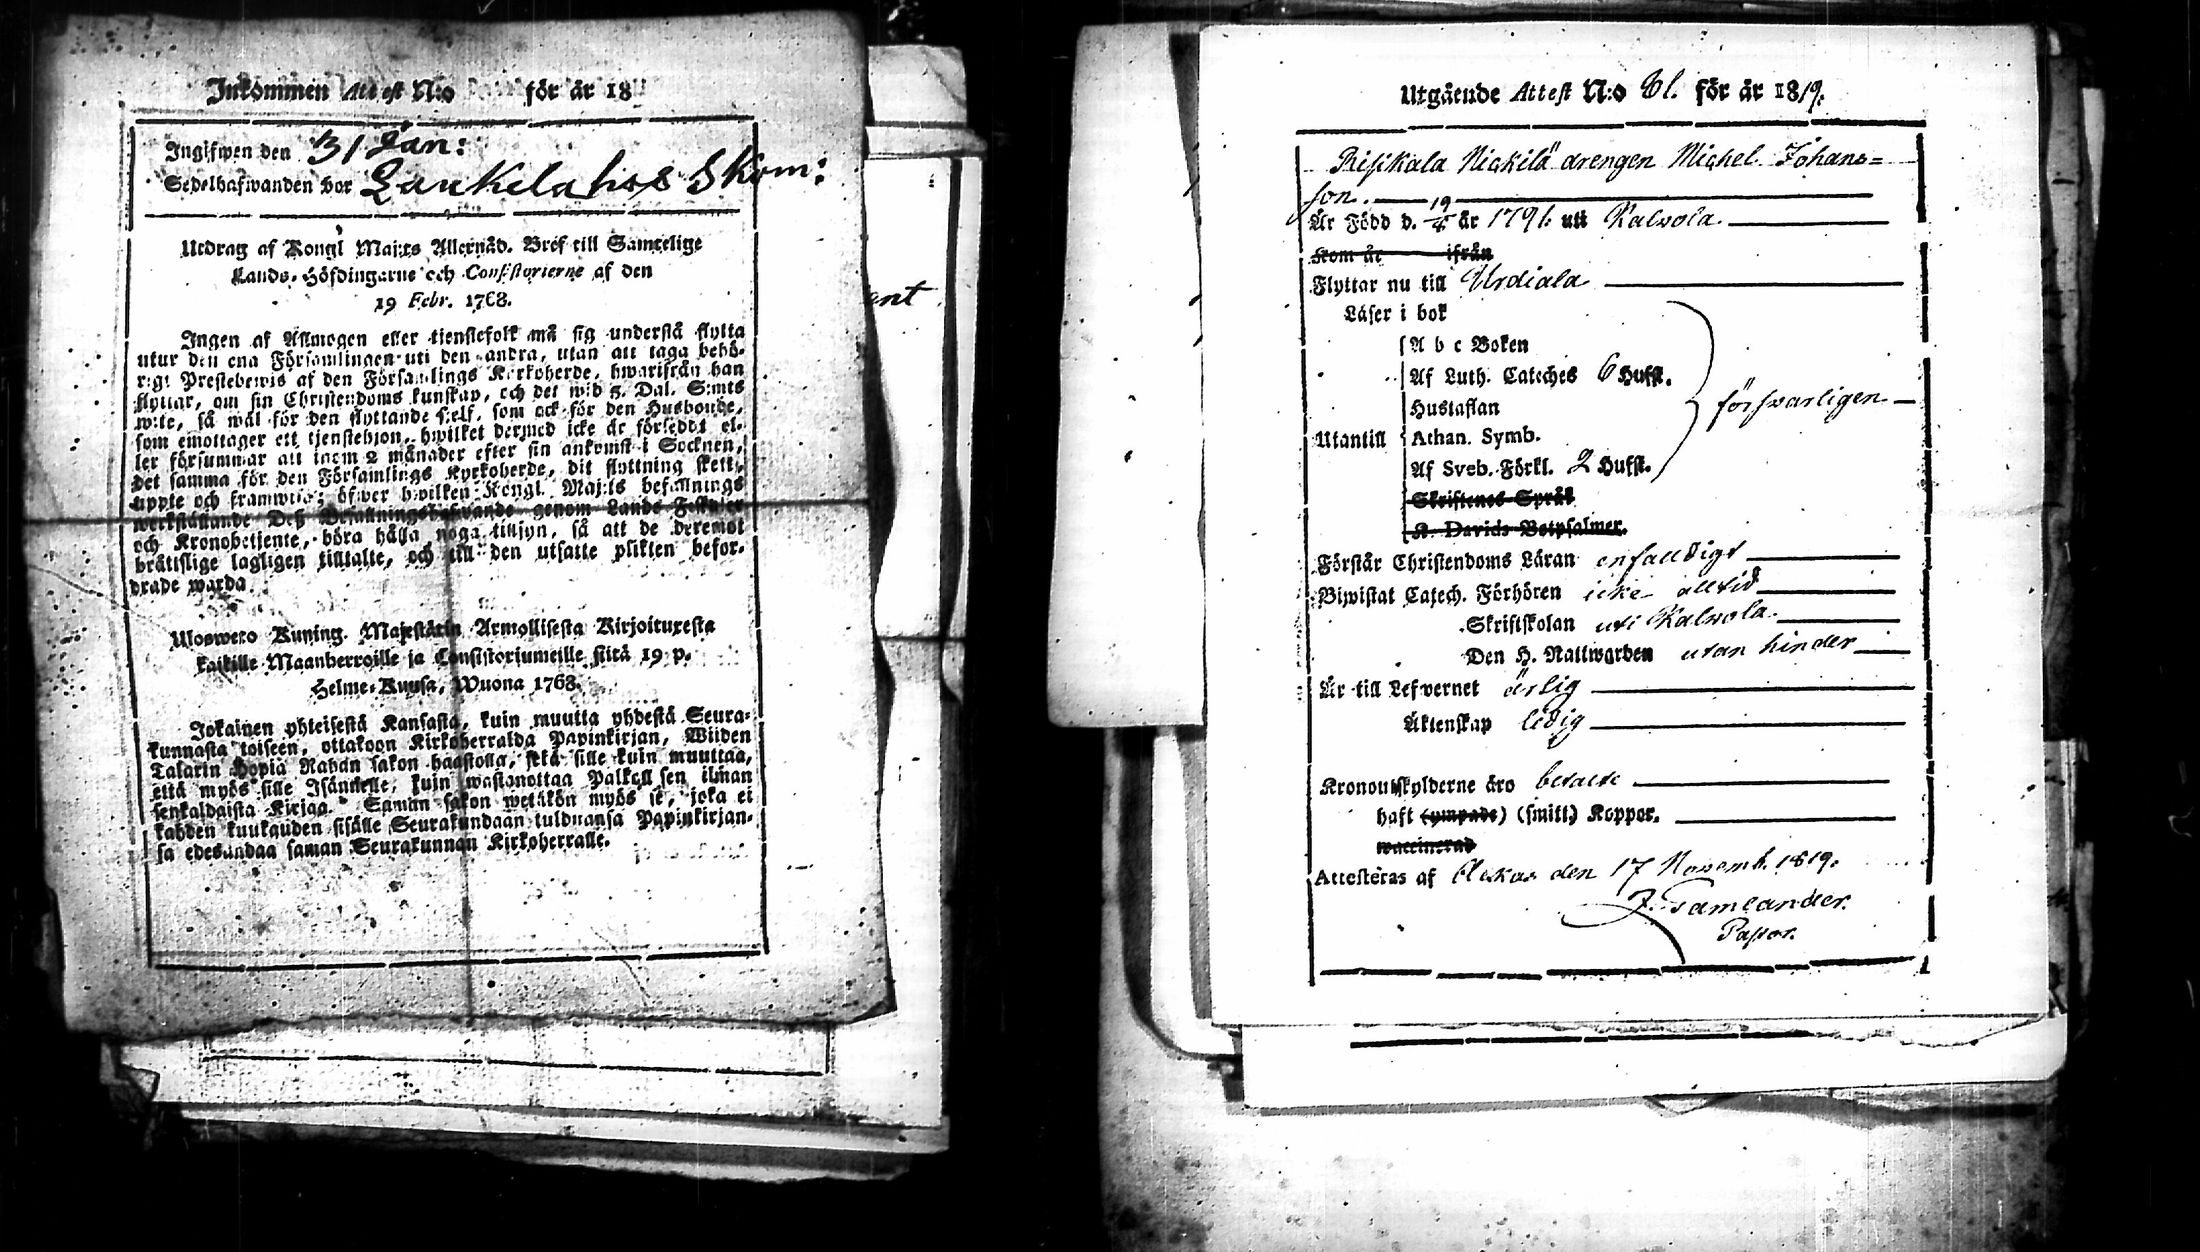 Inkommen Attest N:o för år 18
Ingifwen den 31 Jan:
Sedelhafwanden bor Laukela hos Skom:
Utdrag af Kongl Maj:ts Allernåd. Bref till Samtelige
Lands-Höfdingarne och Consistorierne af den
19 Febr. 1768.
Ingen af Allmogen eller tjenstefolk må sig understå flytta
utur den ena Församlingen uti den andra, utan att taga behö-
rigt Prestebewis af den Församlings Kyrkoherde, hwarifrån han
flyttar, om sin Christendoms kunskap, och det wid 5. Dal. S:mts
wite, så wäl för den flyttande sjelf, som ock för den Husbonde,
som emottager ett tjenstehjon, hwilket dermed icke är försedt el-
ler försummar att inom 2 månader efter sin ankomst i Socknen,
det samma för den Församlings Kyrkoherde, dit flyttning skett,
uppte och framwisa; öfwer hwilken Kongl. Maj:ts befallnings
werkställande Dess Befallningshafwande genom Lands Fiskaler
och Kronobetjente, böra hålla noga tillsyn, så att de deremot
bråttslige lagligen tilltalte, och till den utsatte plikten befor-
drade warda.
Uloswero Kuning. Majestätin Armollisesta Kirjoituxesta
kaikille Maanherroille ja Consistoriumeille siitä 19 p.
Helme-Kuusa, Wuona 1768.
Jokainen yhteisestä Kansasta, kuin muutta yhdestä Seura-
kunnasta toiseen, ottakoon Kirkoherralda Papinkirjan, Wiiden
Talarin Hopia Rahan sakon haastolla, sekä sille kuin muuttaa,
että myös sille Isännelle, kuin wastanottaa Palkoll sen ilman
senkaldaista Kirjaa. Saman sakon wetäkön myös se, joka ei
kahden kuukauden sisälle Seurakundaan tulduansa Papinkirjan-
sa edesandaa saman Seurakunnan Kirkoherralle.
Utgående Attest N:o 61. för år 1819.
Risikala Nickilä drengen Michel Johans=
son.
Är Född d. 19/8 år 1791. uti Kalvola.
Kom år ifrån
Flyttar nu till Urdiala
Läser i bok
A b c Boken
Af Luth. Cateches 6 Hufst.
försvarligen
Hustaflan
Utantill Athan. Symb.
Af Sveb. Förkl. 2 Hufst.
Skriftenes Språk
K. Davids Botpsalmer.
Förstår Christendoms Läran enfaldigt
Biwistat Catech. Förhören icke alltid
Skriftskolan uti Kalvola.
Den H. Nattwarden utan hinder
Är till Lefwernet ärlig
Äktenskap ledig
Kronoutskylderne äro betalte
haft (ympade) (smitt.) Koppor.
waccinerad
Attesteras af Akas den 17 Novemb. 1819.
J. Gamlander.
Pastor.